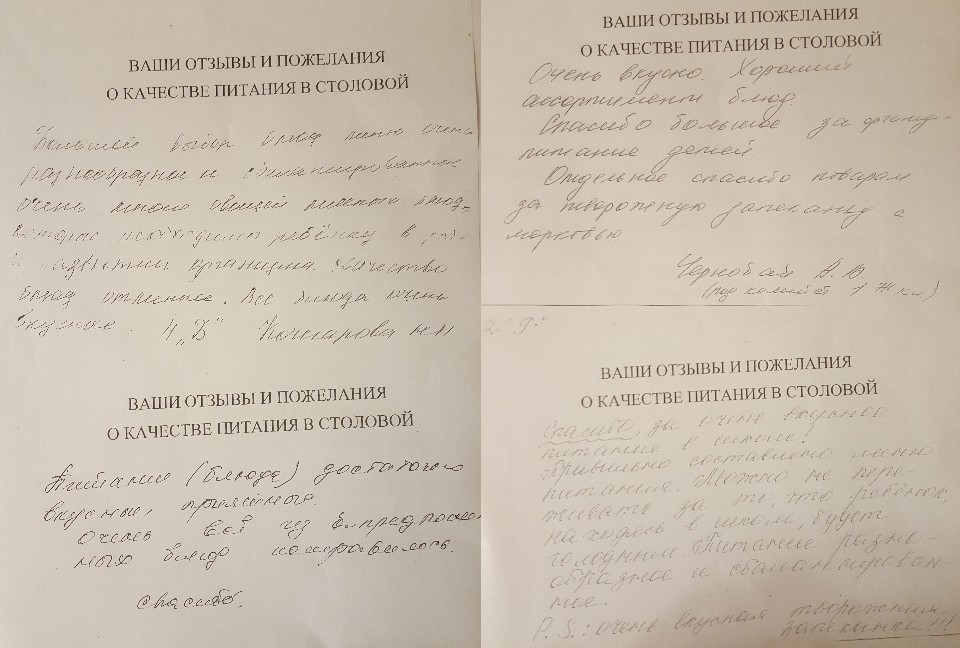 ВАШИ ОТЗЫВЫ И ПОЖЕЛАНИЯ
О КАЧЕСТВЕ ПИТАНИЯ В СТОЛОВОЙ
Большой выбор блюд меню очень
разнообразное и сбалансированное
очень много овощей мясного блюд,
которые необходимы ребёнку в
организма. Качество
блюд отменное. Все блюда очень
вкусные. 4 „Б"
ВАШИ ОТЗЫВЫ И ПОЖЕЛАНИЯ
О КАЧЕСТВЕ ПИТАНИЯ В СТОЛОВОЙ
Питание (блюда) достаточно
вкусные, приятно.
Очень всё из предложен
ных блюд понравилось.
Спасибо.
ВАШИ ОТЗЫВЫ И ПОЖЕЛАНИЯ
О КАЧЕСТВЕ ПИТАНИЯ В СТОЛОВОЙ
Очень вкусно. Хороший
ассортимент блюд.
Спасибо большое за
питание детей
Отдельное спасибо поварам
за творожную запеканку с
морковью
Чернобай А. В.
(род комитет 1 Ж кл)
2 "Г"
ВАШИ ОТЗЫВЫ И ПОЖЕЛАНИЯ
О КАЧЕСТВЕ ПИТАНИЯ В СТОЛОВОЙ
Спасибо, за очень вкусное
питание в школе!
Правильно составлено меню
питания. Можно не пере-
живать за то, что ребёнок,
находясь в школе, будет
голодным. Питание разно-
образное и сбалансирован-
ное.
P. S.: очень вкусная творожная
запеканка!!!